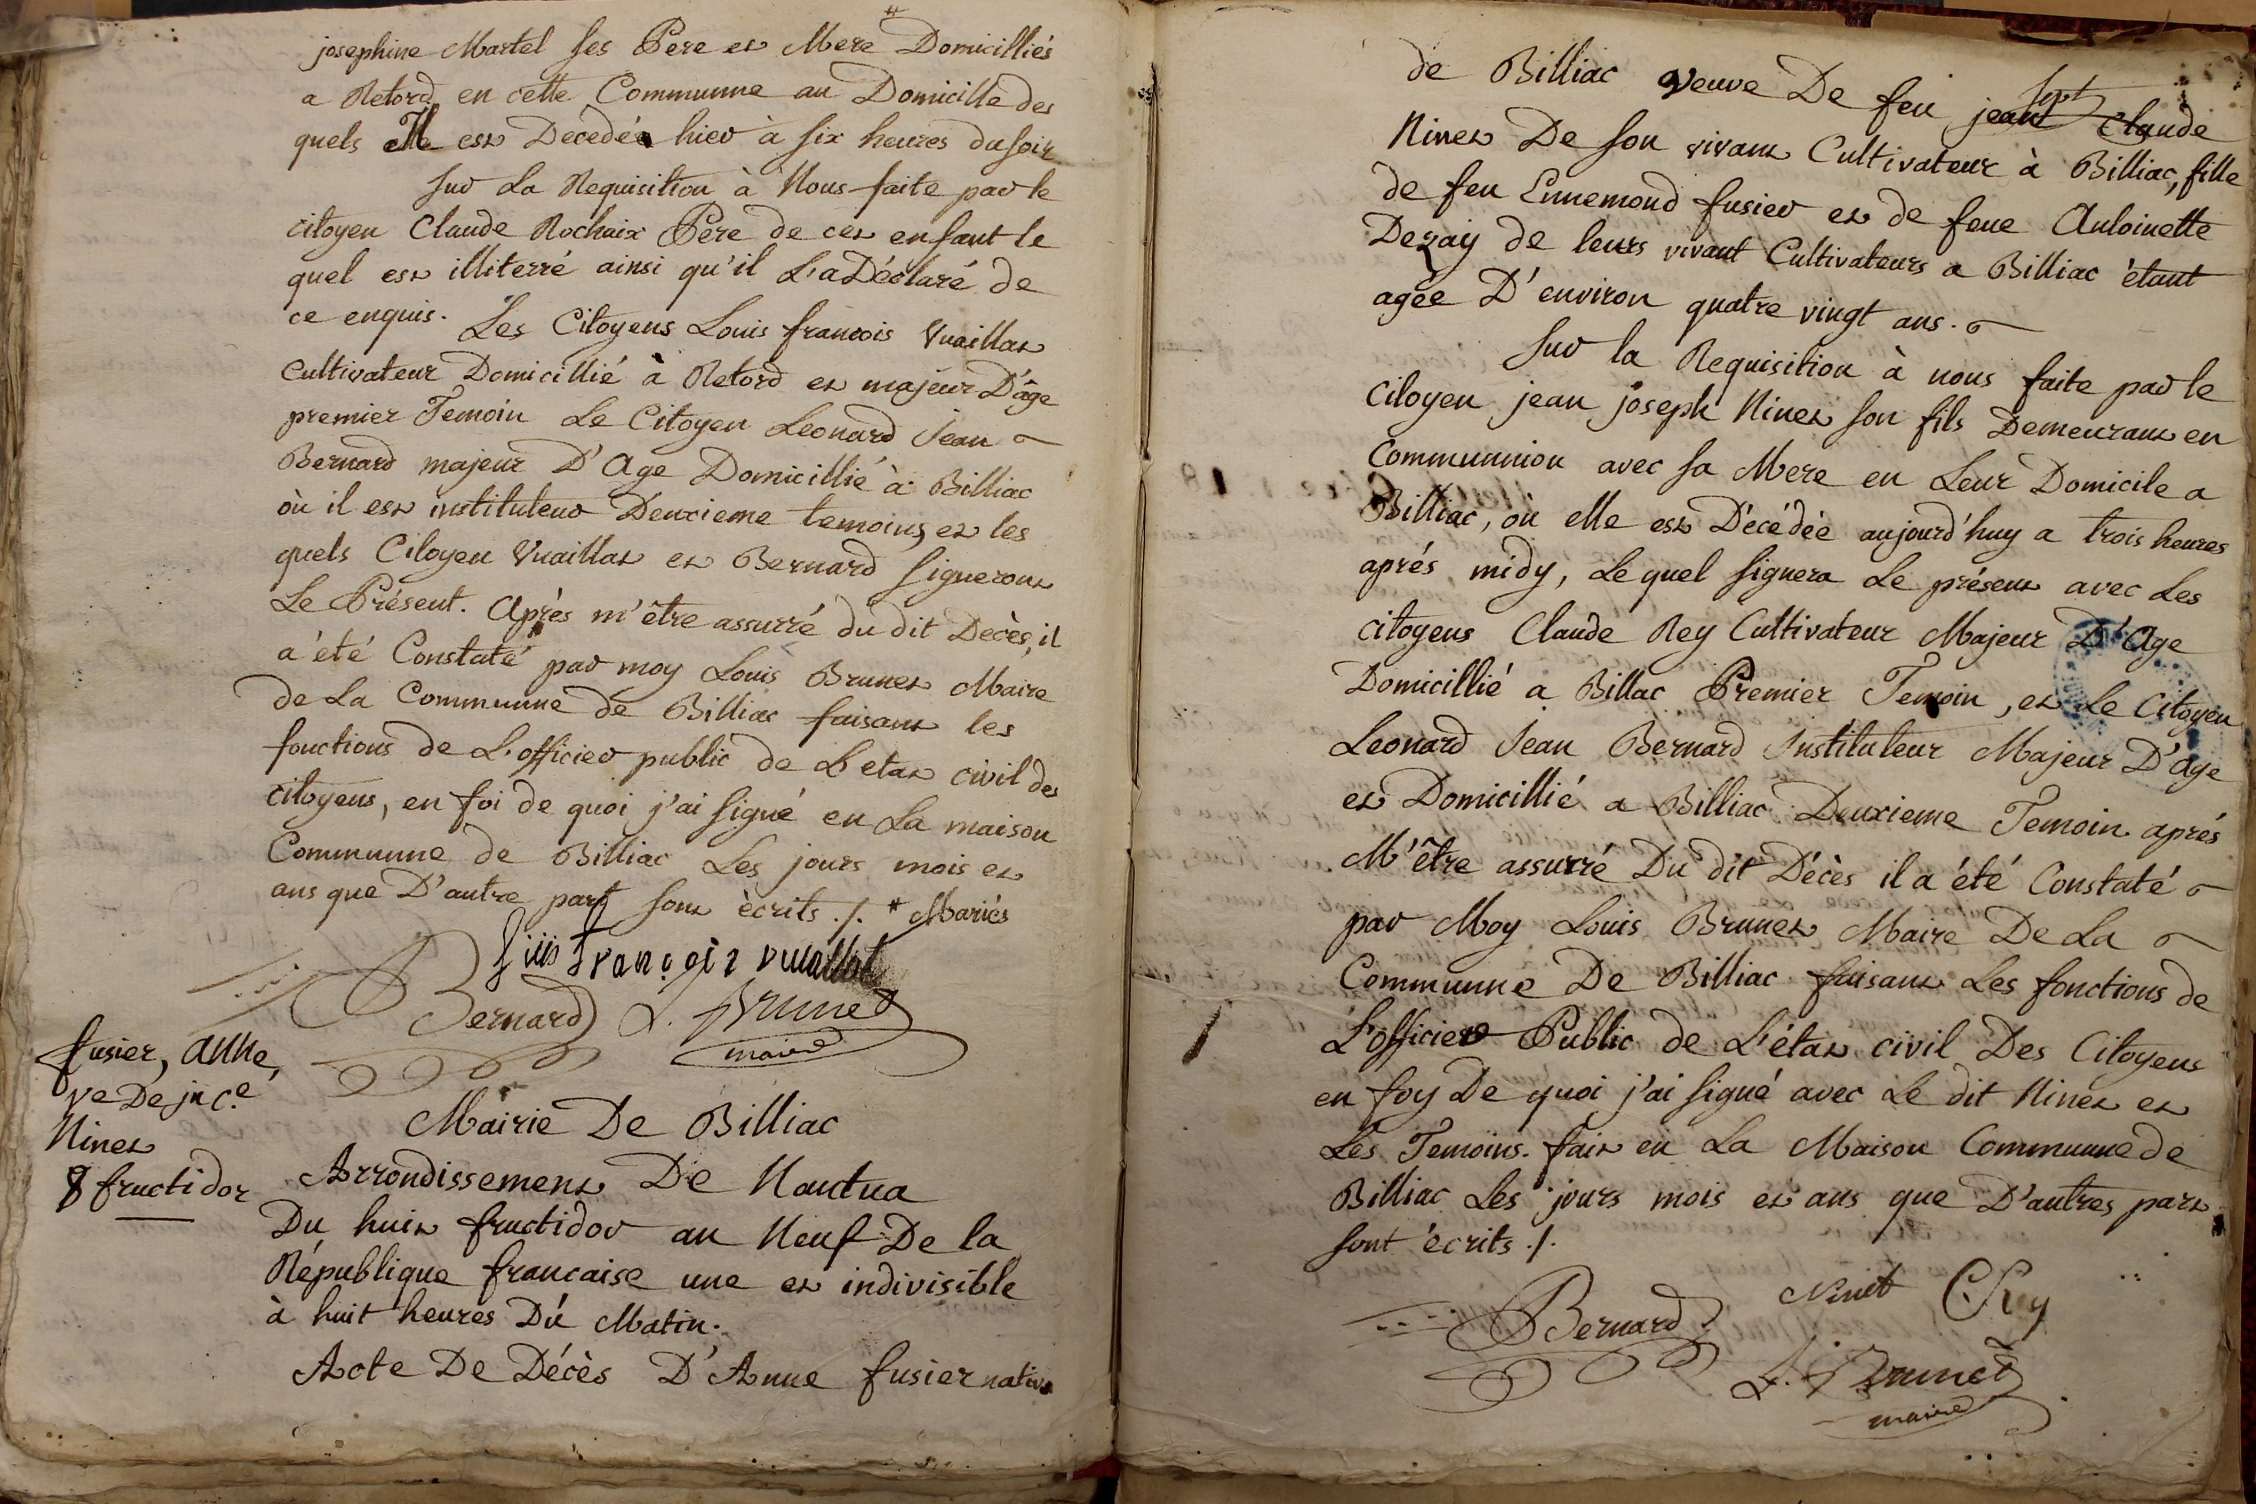 josephine Martel ses Pere et Mere # Domicilliés
a Retord en cette Communne au Domicille des
quels Il est Decedé hier à six heures du soir
sur La Requisition à Nous faite par le
citoyen Claude Rochaix Pere de cet enfant le
quel est illiterré ainsi qu'il L'a Déclaré de
ce enquis. Les Citoyens Louis francois Vuaillat
Cultivateur Domicillié à Retord et majeur D'âge
premier Temoin Le Citoyen Leonard Jean
Bernard majeur D'Age Domicillié à Billiac
où il est instituteur Deuxieme temoins, et les
quels Citoyen Vuaillat et Bernard signeront
Le Présent. Après m'être assurré du dit Decès, il
a été Constaté par moy Louis Brunet Maire
de La Communne de Billiac faisant les
fonctions de L'officier public de L'etat civil des
citoyens, en foi de quoi j'ai signé en La maison
Communne de Billiac Les jours mois et
ans que D'autre part sont ècrits ./. # Mariés
françois vuallat
Bernard L. Brunet
maire
fusier, anne,
ve De jn ce.
Ninet
8 fructidor
Mairie De Billiac
Arrondissement De Nantua
Du huit fructidor an Neuf De la
République francaise une et indivisible
à huit heures Du Matin.
Acte De Décès D'Anne fusier native
de Billiac veuve De feu jean Claude
Ninet De son vivant Cultivateur à Billiac, fille
de feu Ennemond fusier et de feue Antoinette
Dezay de leurs vivant Cultivateurs a Billiac étant
agée D'environ quatre vingt ans.
sur la Requisition à nous faite par le
Citoyen jean joseph Ninet son fils Demeurant en
Communnion avec sa Mere en Leur Domicile a
Billiac, où elle est Décédée aujourd'huy a trois heures
aprés midy, Le quel signera Le présent avec Les
citoyens Claude Rey Cultivateur Majeur D'Age
Domicillié a Billac Premier Temoin, et Le Citoyen
Leonard Jean Bernard Instituteur Majeur D'Age
et Domicillié a Billiac Deuxieme Temoin. aprés
M'être assurré Du dit Décès il a été Constaté
par Moy Louis Brunet Maire De La
Communne De Billiac faisant Les fonctions de
L'officier Public de L'état civil Des Citoyens
en foy De quoi j'ai signé avec Le dit Ninet et
Les Temoins. fait en La Maison Communne de
Billiac Les jours mois et ans que D'autres part
sont écrits ./.
Ninet C. Rey
Bernard
L. Brunet
maire